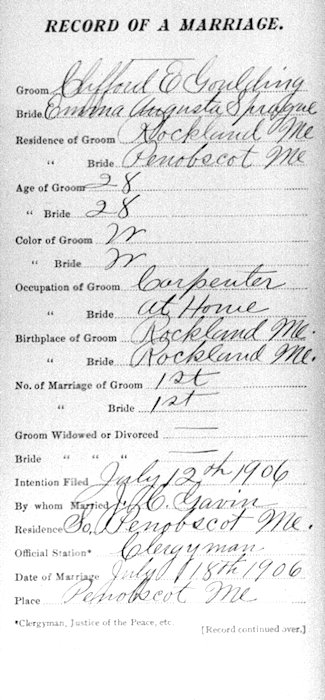 RECORD OF A MARRIAGE.
Groom Clifford E Goulding
Bride Emma Augusta Sprague
Residence of Groom Rockland Me
" Bride Penobscot Me
Age of Groom 28
" Bride 28
Color of Groom W
" Bride W
Occupation of Groom Carpenter
" Bride at Home
Birthplace of Groom Rockland Me.
" Bride Rockland Me.
No. of Marriage of Groom 1st
" Bride 1st
Groom Widowed or Divorced —
Bride " " " —
Intention Filed July 12th 1906
By whom Married J. C. Gavin
Residence So. Penobscot Me.
Official Station* Clergyman
Date of Marriage July 18th 1906
Place Penobscot Me
*Clergyman, Justice of the Peace, etc.
[Record continued over.]